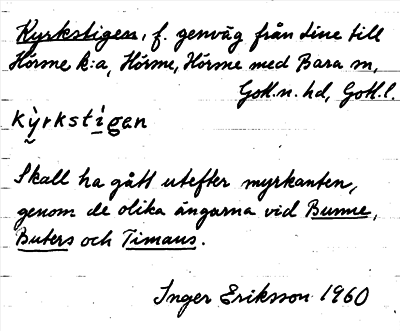 Kyrkstigen, f. genväg från Line till
Hörsne k:a, Hörsne, Hörsne med Bara sn,
Gotl.n. hd, Gotl. l.
kỳrkstìgan
Skall ha gått utefter myrkanten,
genom de olika ängarna vid Bunne,
Buters och Timans.
Inger Eriksson 1960